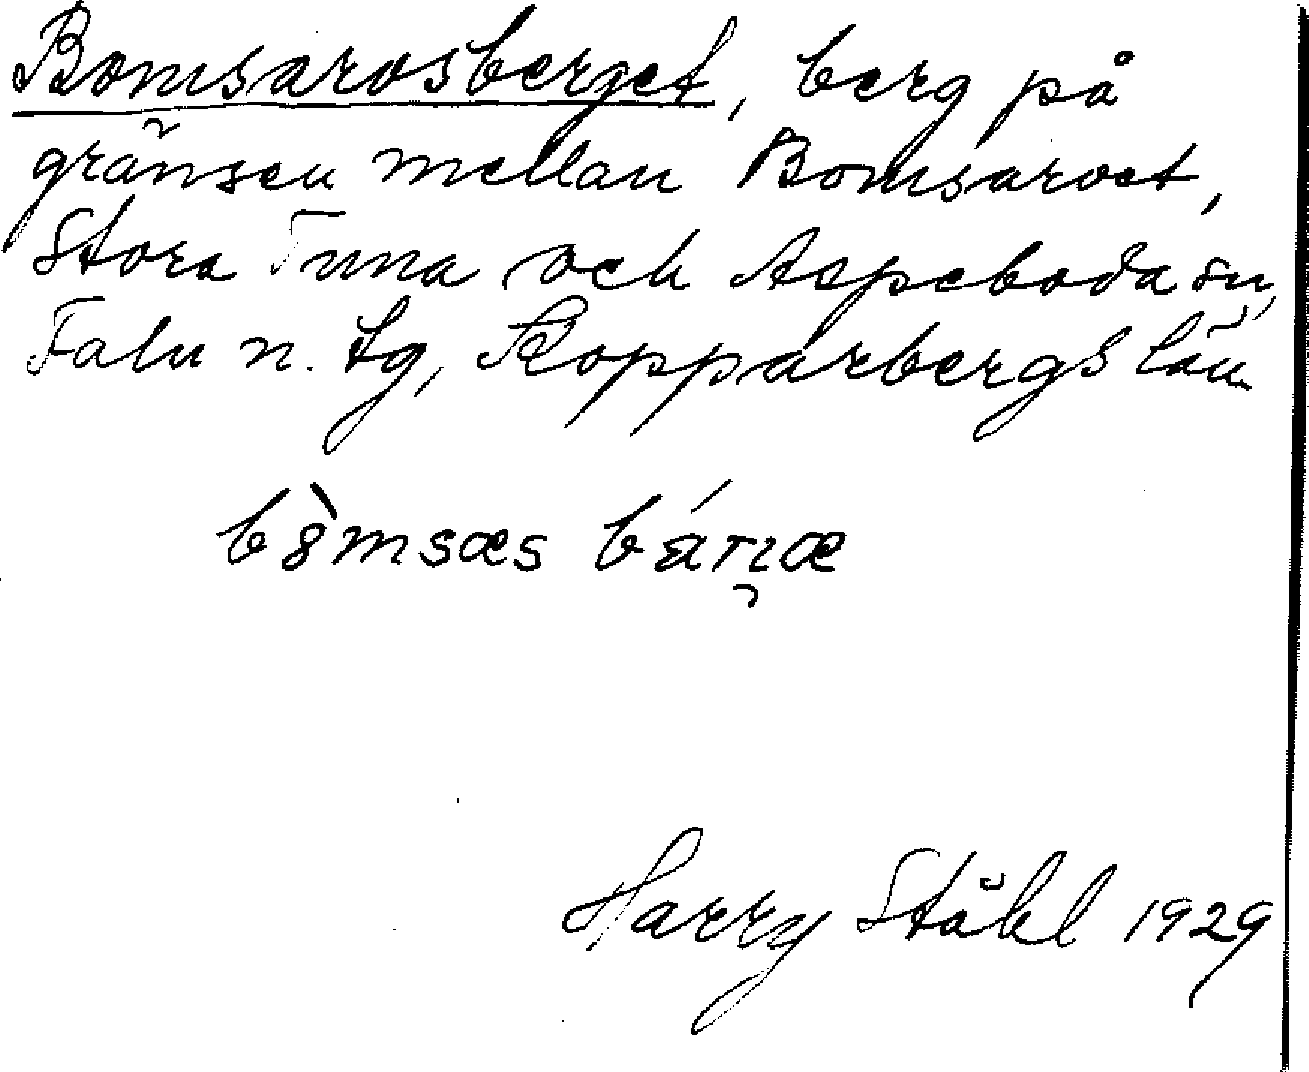 Bomsarosberget, berg på
gränsen mellan Bomsarvet,
Stora Tuna och Aspeboda sn,
Falu n. tg, Kopparbergs län
Harry Ståhl 1929